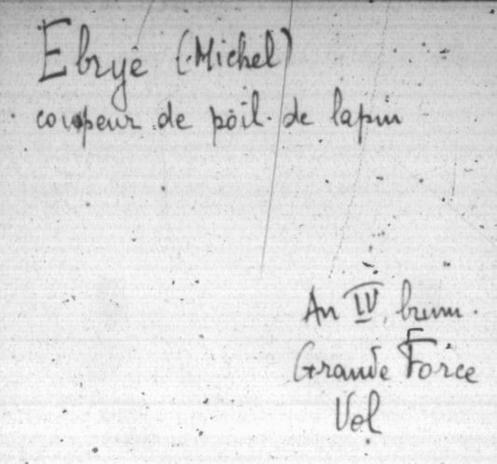 Ebrye (Michel)
coupeur de poil de lapin
An IV, brum.
Grande Force
Vol